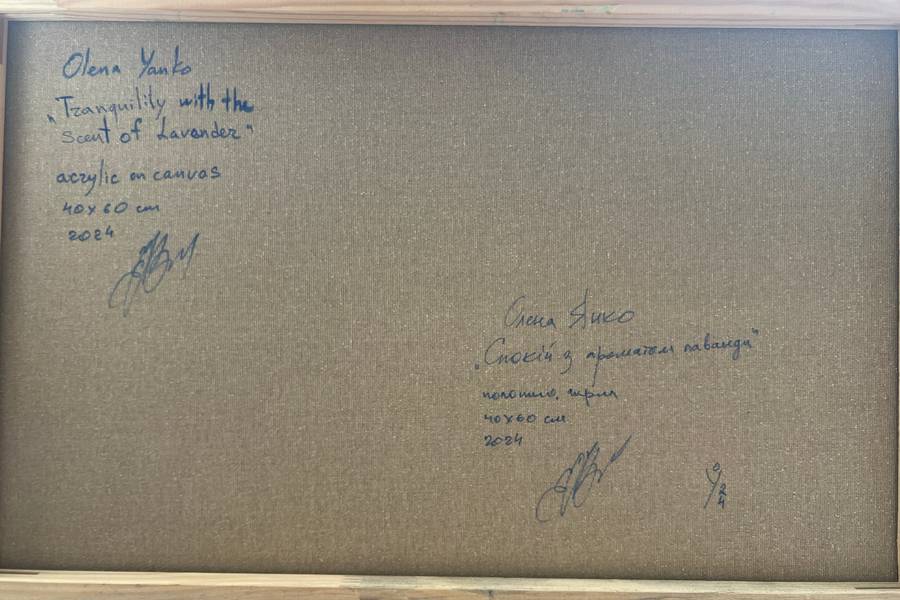 Olena Yanko
„Tranquility with the
Scent of Lavander"
acrylic on canvas
40x60 cm
2024
Олена Янко
„Спокій з ароматом лаванди"
полотно, акрил
40x60 см
2024